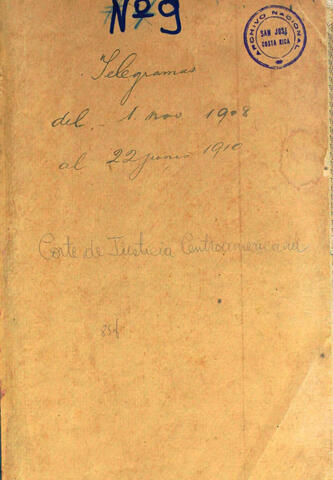 Nº 9
ARCHIVO NACIONAL
SAN JOSÉ
COSTA RICA
Telegramas
del - 1 nov 1908
al 22 junio 1910
Corte de Justicia Centroamericana